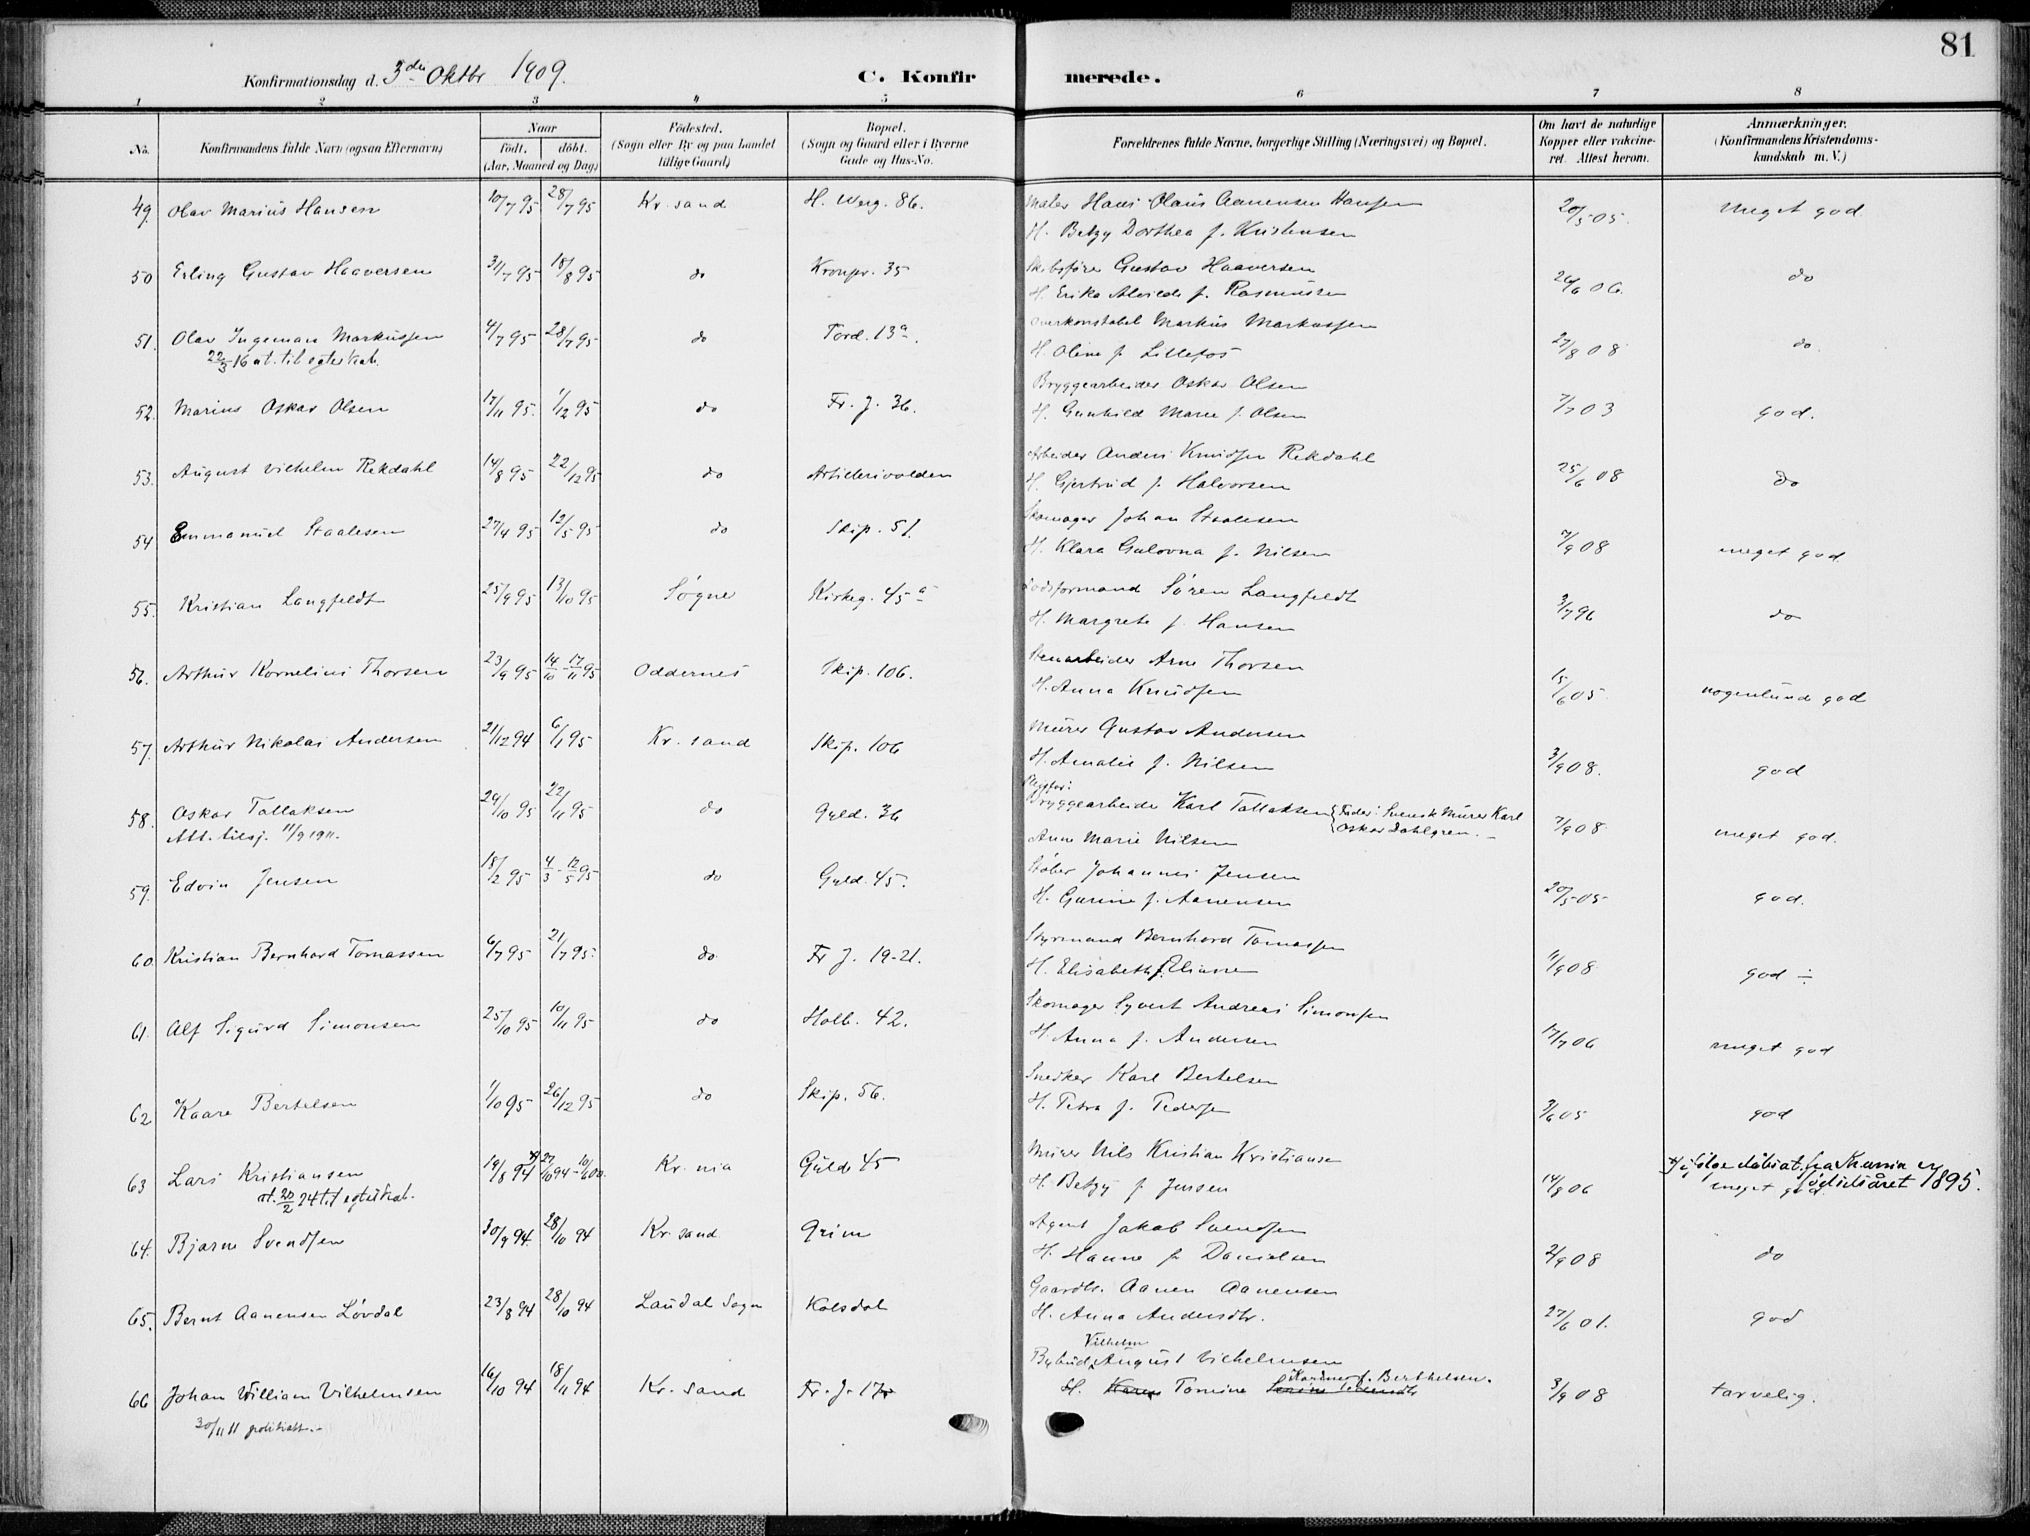 81
Konfirmationsdag d. 3die Oktbr 1909.
C. Konfirmerede.
1 2 3 4 5 6 7 8
No. Konfirmandens fulde Navn (ogsaa Efternavn)
Naar født. døbt. (Aar, Maaned og Dag)
Fødested. (Sogn eller By og paa Landet tillige Gaard)
Bopæl. (Sogn og Gaard eller i Byerne Gade og Hus-No.
Forældrenes fulde Navne, borgerlige Stilling (Næringsvei) og Bopæl.
Om havt de naturlige Kopper eller vakcineret. Attest herom.
Anmærkninger. (Konfirmandens Kristendomskundskab m. V.)
49. Olav Marius Hansen 10/7 95 28/7 95 Kr. sand H. Werg. 86. Maler Hans Olaus Aanensen Hansen 20/5 05. Meget god
H. Betzy Dorthea f. Kristensen
50 Erling Gustav Haaversen 31/7 95 18/8 95 do Kronpr. 35 Skibsfører Gustav Haaversen 26/6 06. do
H. Erika Alvilde f. Rasmussen
51. Olav Ingeman Markussen 4/7 95 28/7 95 do Tord. 13a. Overkonstabel Markus Markussen 27/8 08 do
22/3 16 at. til egteskab.
H. Oline f. Lillefos
52. Marius Oskar Olsen 17/11 95. 1/12 95 do Fr. J. 36. Bryggearbeider Oskar Olsen 7/7 03 god.
H. Gunhild Marie f. Olsen
53. August Vilhelm Rekdahl 14/8 95 22/12 95 do Artillerivolden Arbeider Anders Knudsen Rekdahl 25/6 08 do
H. Gjertrud f. Halvorsen
54 Emmanuel Staalesen 27/4 95 12/5 95 do Skip. 51. Skomager Johan Staalesen 7/9 08 meget god
H. Klara Gulovna f. Nilsen
55. Kristian Langfeldt 25/9 95 13/10 95 Søgne Kirkeg. 45a Lodsformand Søren Langfeldt 3/7 96 do
H. Margrete f. Hansen
56. Arthur Kornelius Thorsen 23/9 95 14/10 - 17/11 95 Oddernes Skip. 106. Stenarbeider Arne Thorsen 15/6 05. nogenlunde god
H. Anna Knudsen
57. Arthur Nikolai Andersen 21/12 94 6/1 95 Kr. sand Skip. 106 Murer Gustav Andersen 3/9 08. god
H. Amalie f. Nilsen
58. Oskar Tallaksen 29/10 95 22/11 95 do Gyld. 36 Plejefor: Bryggearbeider Karl Tallaksen {Fader: Svensk Murer Karl Oskar Dahlgren. 7/9 08 meget god.
Att. tilsj. 11/9 1911.
Anne Marie Nilsen
59. Edvin Jensen 18/2 95 4/3 - 12/5 95 do Gyld. 45. Støber Johannes Jensen 20/5 05 god.
H. Gurine f. Aanensen
60. Kristian Bernhard Tomassen 6/7 95 21/7 95. do Fr J. 19-21. Styrmand Bernhard Tomassen 11/9 08 god ÷
H. Elisabeth f. Eliassen
61. Alf Sigurd Simonsen 25/10 95 10/11 95 do Holb. 42. Skomager Syvert Andreas Simonsen 17/7 06 meget god
H. Anna f. Andersen
62 Kaare Bertelsen 1/10 95 26/12 95 do Skip. 56. Snedker Karl Bertelsen 3/6 05 god
H. Petra f. Pedersen
63 Lars Kristiansen 19/8 94 27/10 94 - 10/6 00. Kr. nia Gyld 45 Murer Nils Kristian Kristiansen 14/9 06 meget god.
at. 20/2 24 til egteskab.
H. Betzy f. Jensen
x) ifølge dåbsat. fra Kr.nia er fødselsåret 1895.
64. Bjarne Svendsen 30/9 94. 28/10 94 Kr. sand Grim Agent Jakob Svendsen 2/9 08 do
H. Hanne f. Danielsen
65. Bernt Aanensen Løvdal 23/8 94 28/10 94 Laudal Sogn Kolsdal Gaardbr. Aanen Aanensen 27/6 01. god
H. Anna Andersdtr.
66 Johan William Vilhelmsen 16/10 94 18/11 94 Kr. sand Fr. J. 17 Bybud Vilhelm August Vilhelmsen 3/9 08 tarvelig.
H. Karen Tomine f. Berthelsen.
30/11 11